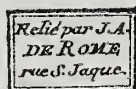 Relié par J.A.
DE ROME
rue S. Jaque.